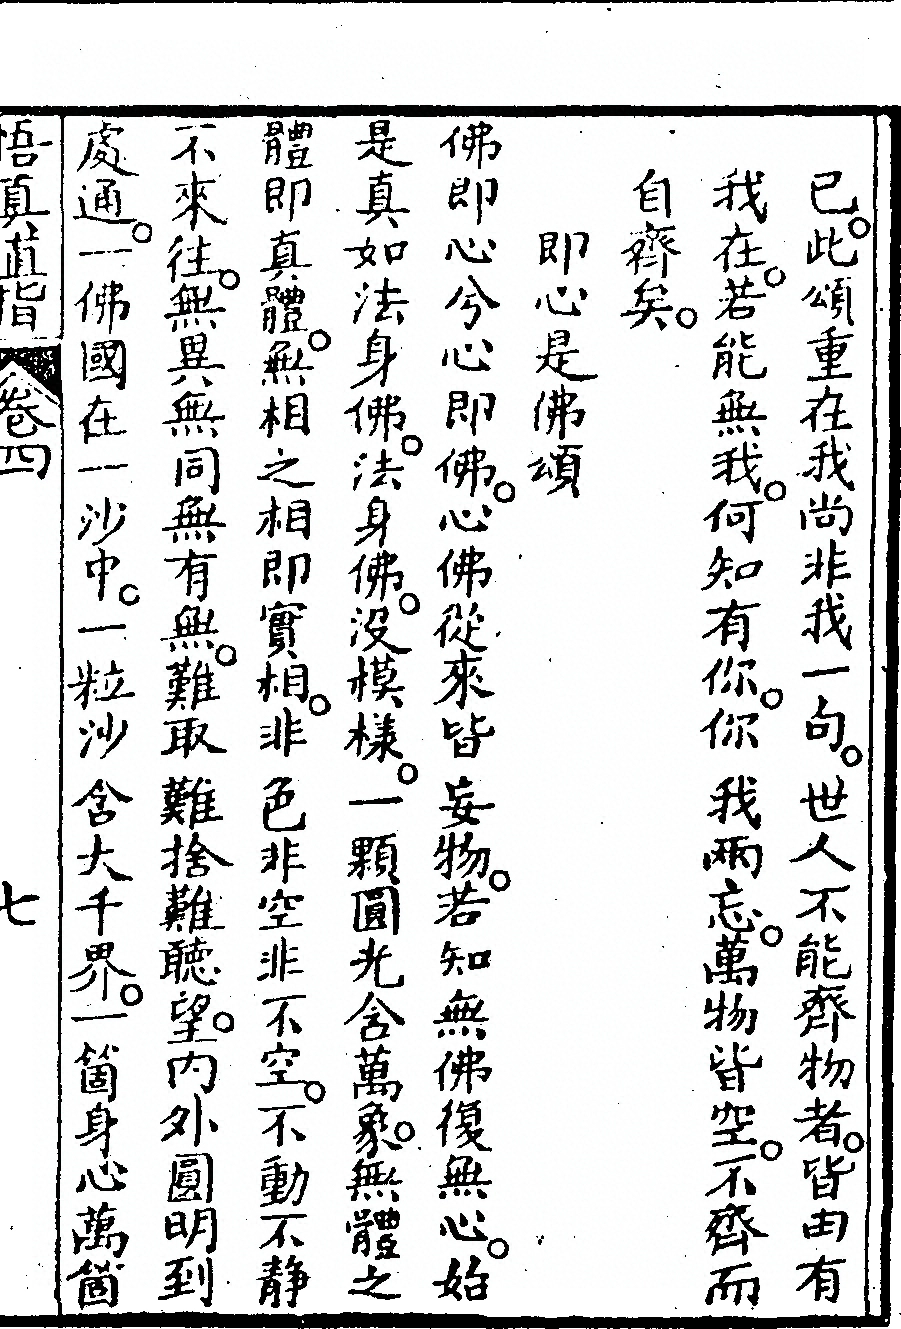 已。此頌重在我尚非我一句。世人不能齊物者。皆由有
我在。若能無我。何知有你。你我兩忘。萬物皆空。不齊而
自齊矣。
即心是佛頌
佛即心兮心即佛。心佛從來皆妄物。若知無佛復無心。始
是真如法身佛。法身佛。没模樣。一顆圓光含萬象。無體之
體即真體。無相之相即實相。非色非空非不空。不動不静
不來往。無異無同無有無。難取難捨難聽望。内外圓明到
處通。一佛國在一沙中。一粒沙含大千界。一箇身心萬箇
悟真直指 卷四 七